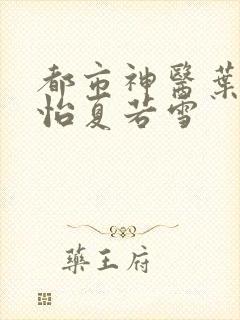 都市神醫葉
怡夏若雪
藥王府